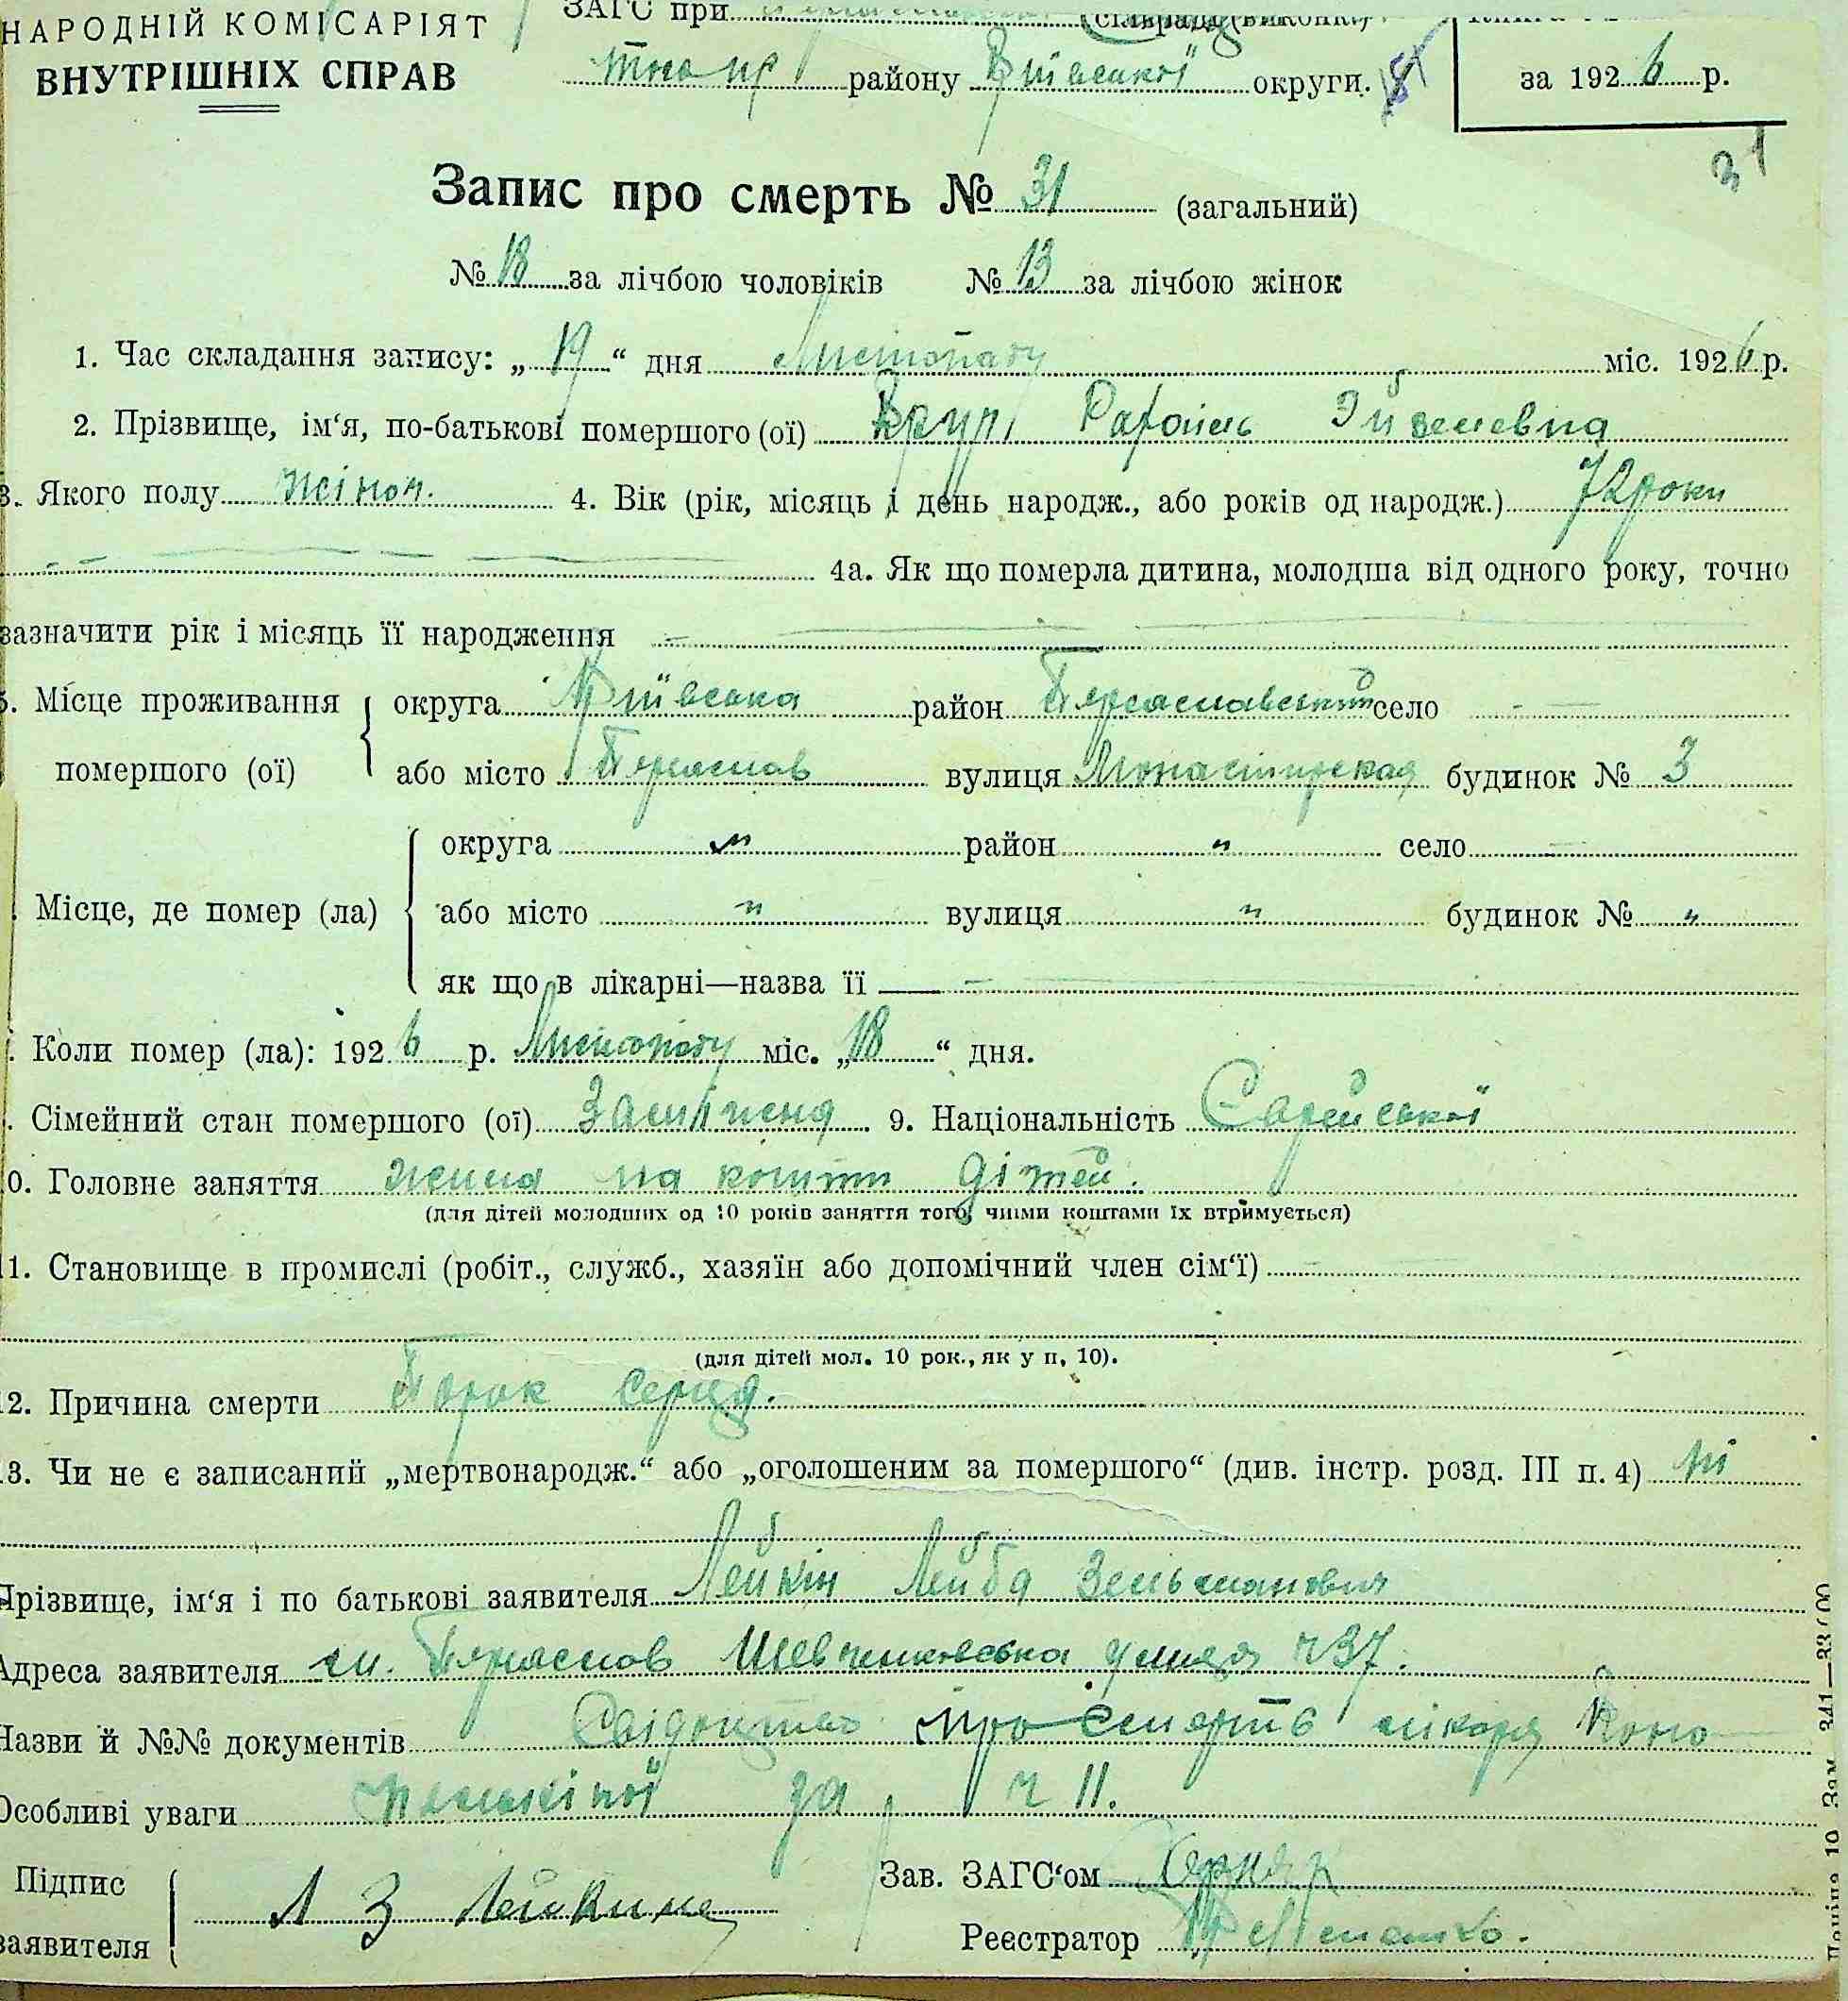 НАРОДНІЙ КОМІСАРІЯТ
ВНУТРІШНІХ СПРАВ
ЗАГС при
району Київської округи.
за 1926 р.
31
Запис про смерть № 31 (загальний)
№ 18 за лічбою чоловіків № 13 за лічбою жінок
1. Час складання запису: „19“ дня Листопаду міс. 1926 р.
2. Прізвище, ім‘я, по-батькові помершого (ої)
3. Якого полу жіноч. 4. Вік (рік, місяць і день народж., або років од народж.) 72 роки
4а. Як що померла дитина, молодша від одного року, точно
зазначити рік і місяць її народження
5. Місце проживання помершого (ої) округа Київська район Переяславський село
або місто Переяслав вулиця Монастирская будинок № 3
Місце, де помер (ла) округа " район " село
або місто " вулиця " будинок № "
як що в лікарні—назва її
Коли помер (ла): 1926 р. Листопаду міс. „18“ дня.
Сімейний стан помершого (ої) 9. Національність Єврейської
0. Головне заняття на кошти дітей.
(для дітей молодших од 10 років заняття того, чиїми коштами їх втримується)
11. Становище в промислі (робіт., служб., хазяїн або допомічний член сім‘ї)
(для дітей мол. 10 рок., як у п. 10).
12. Причина смерти Порок серця.
13. Чи не є записаний „мертвонародж.“ або „оголошеним за помершого“ (див. інстр. розд. III п. 4) ні
Прізвище, ім‘я і по батькові заявителя Лейкін Лейба Зельманович
Адреса заявителя м. Переяслав Шевченковська улиця ч 37.
Назви й №№ документів Свідоцтво про смерть лікаря
Особливі уваги за ч 11.
Підпис заявителя Л З Лейкина
Зав. ЗАГС‘ом
Реєстратор